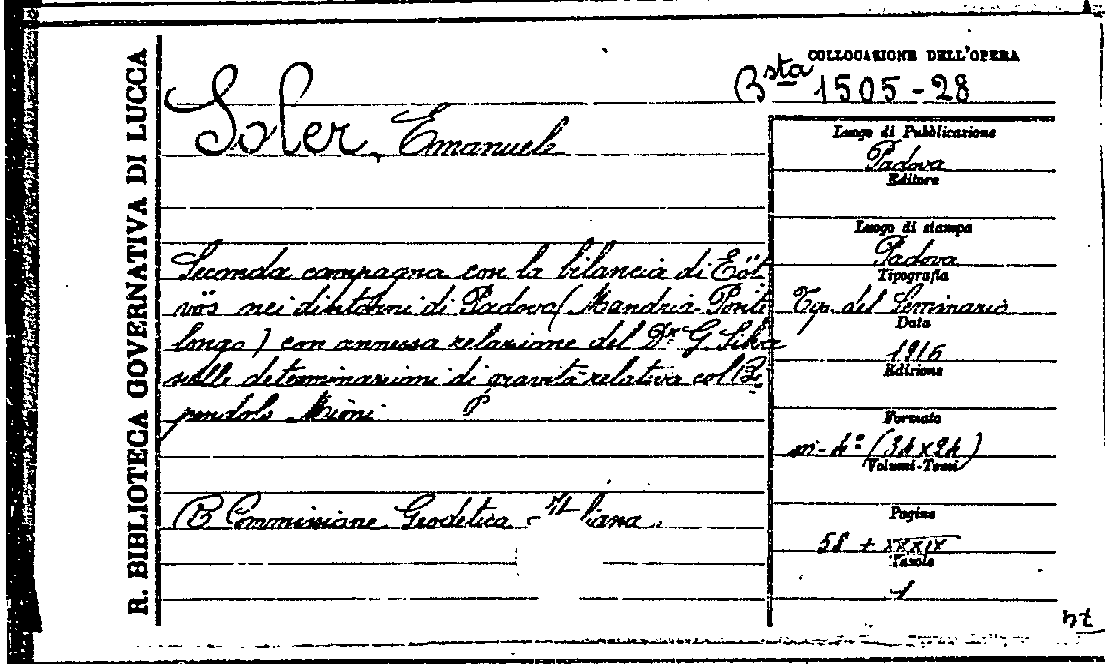 R. BIBLIOTECA GOVERNATIVA DI LUCCA
COLLOCAZIONE DELL'OPERA
Bsta 1505-28
Soler, Emanuele
Luogo di Pubblicazione
Padova
Editore
Luogo di stampa
Padova
Tipografia
Tip. del Seminario
Data
1916
Edizione
Formato
in-4º (34x24)
Volumi-Tomi
Pagine
58 + XXXIX
Tavole
1
Seconda campagna con la bilancia di Eöt
vös nei dintorni di Padova (Mandria-Ponte
longo) con annessa relazione del Dr. G. Silva
sulle determinazioni di gravità relativa col Bi
pendolo Mioni
R Commissione Geodetica Italiana.